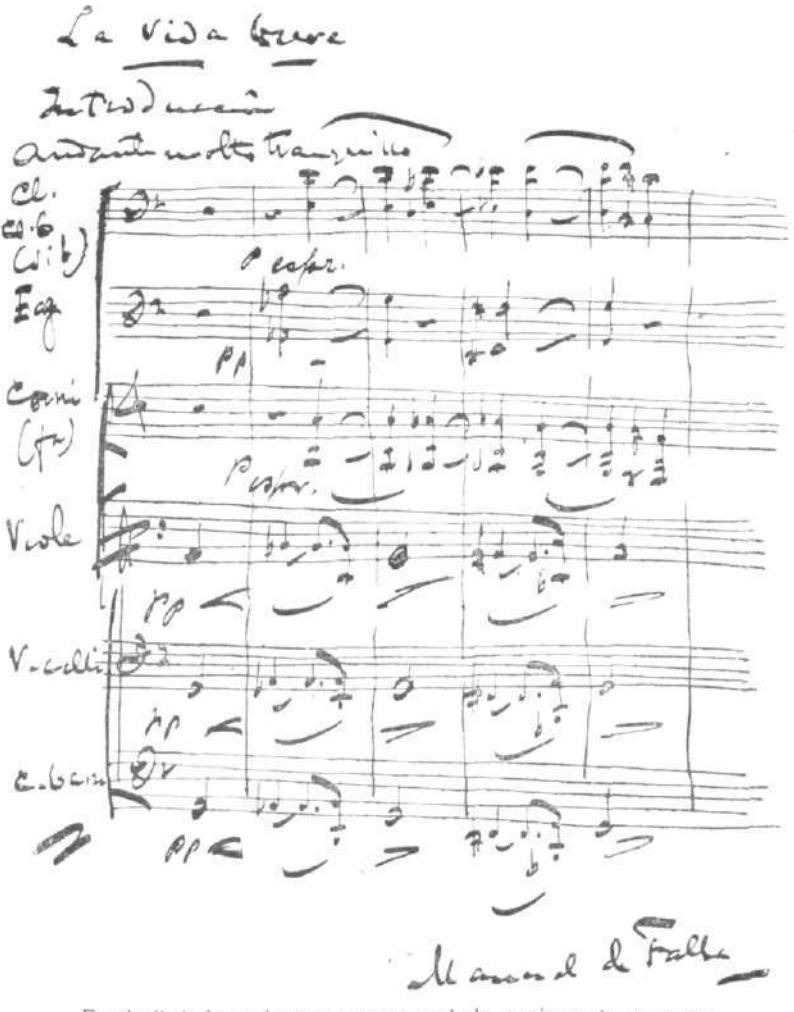 La vida breve
Introducción
Andante molto tranquillo
Cl.
(si b)
P espr.
Fag
pp
Corni
(fa)
P espr.
Viole
pp
V.celli
pp
c. bassi
pp
Manuel de Falla